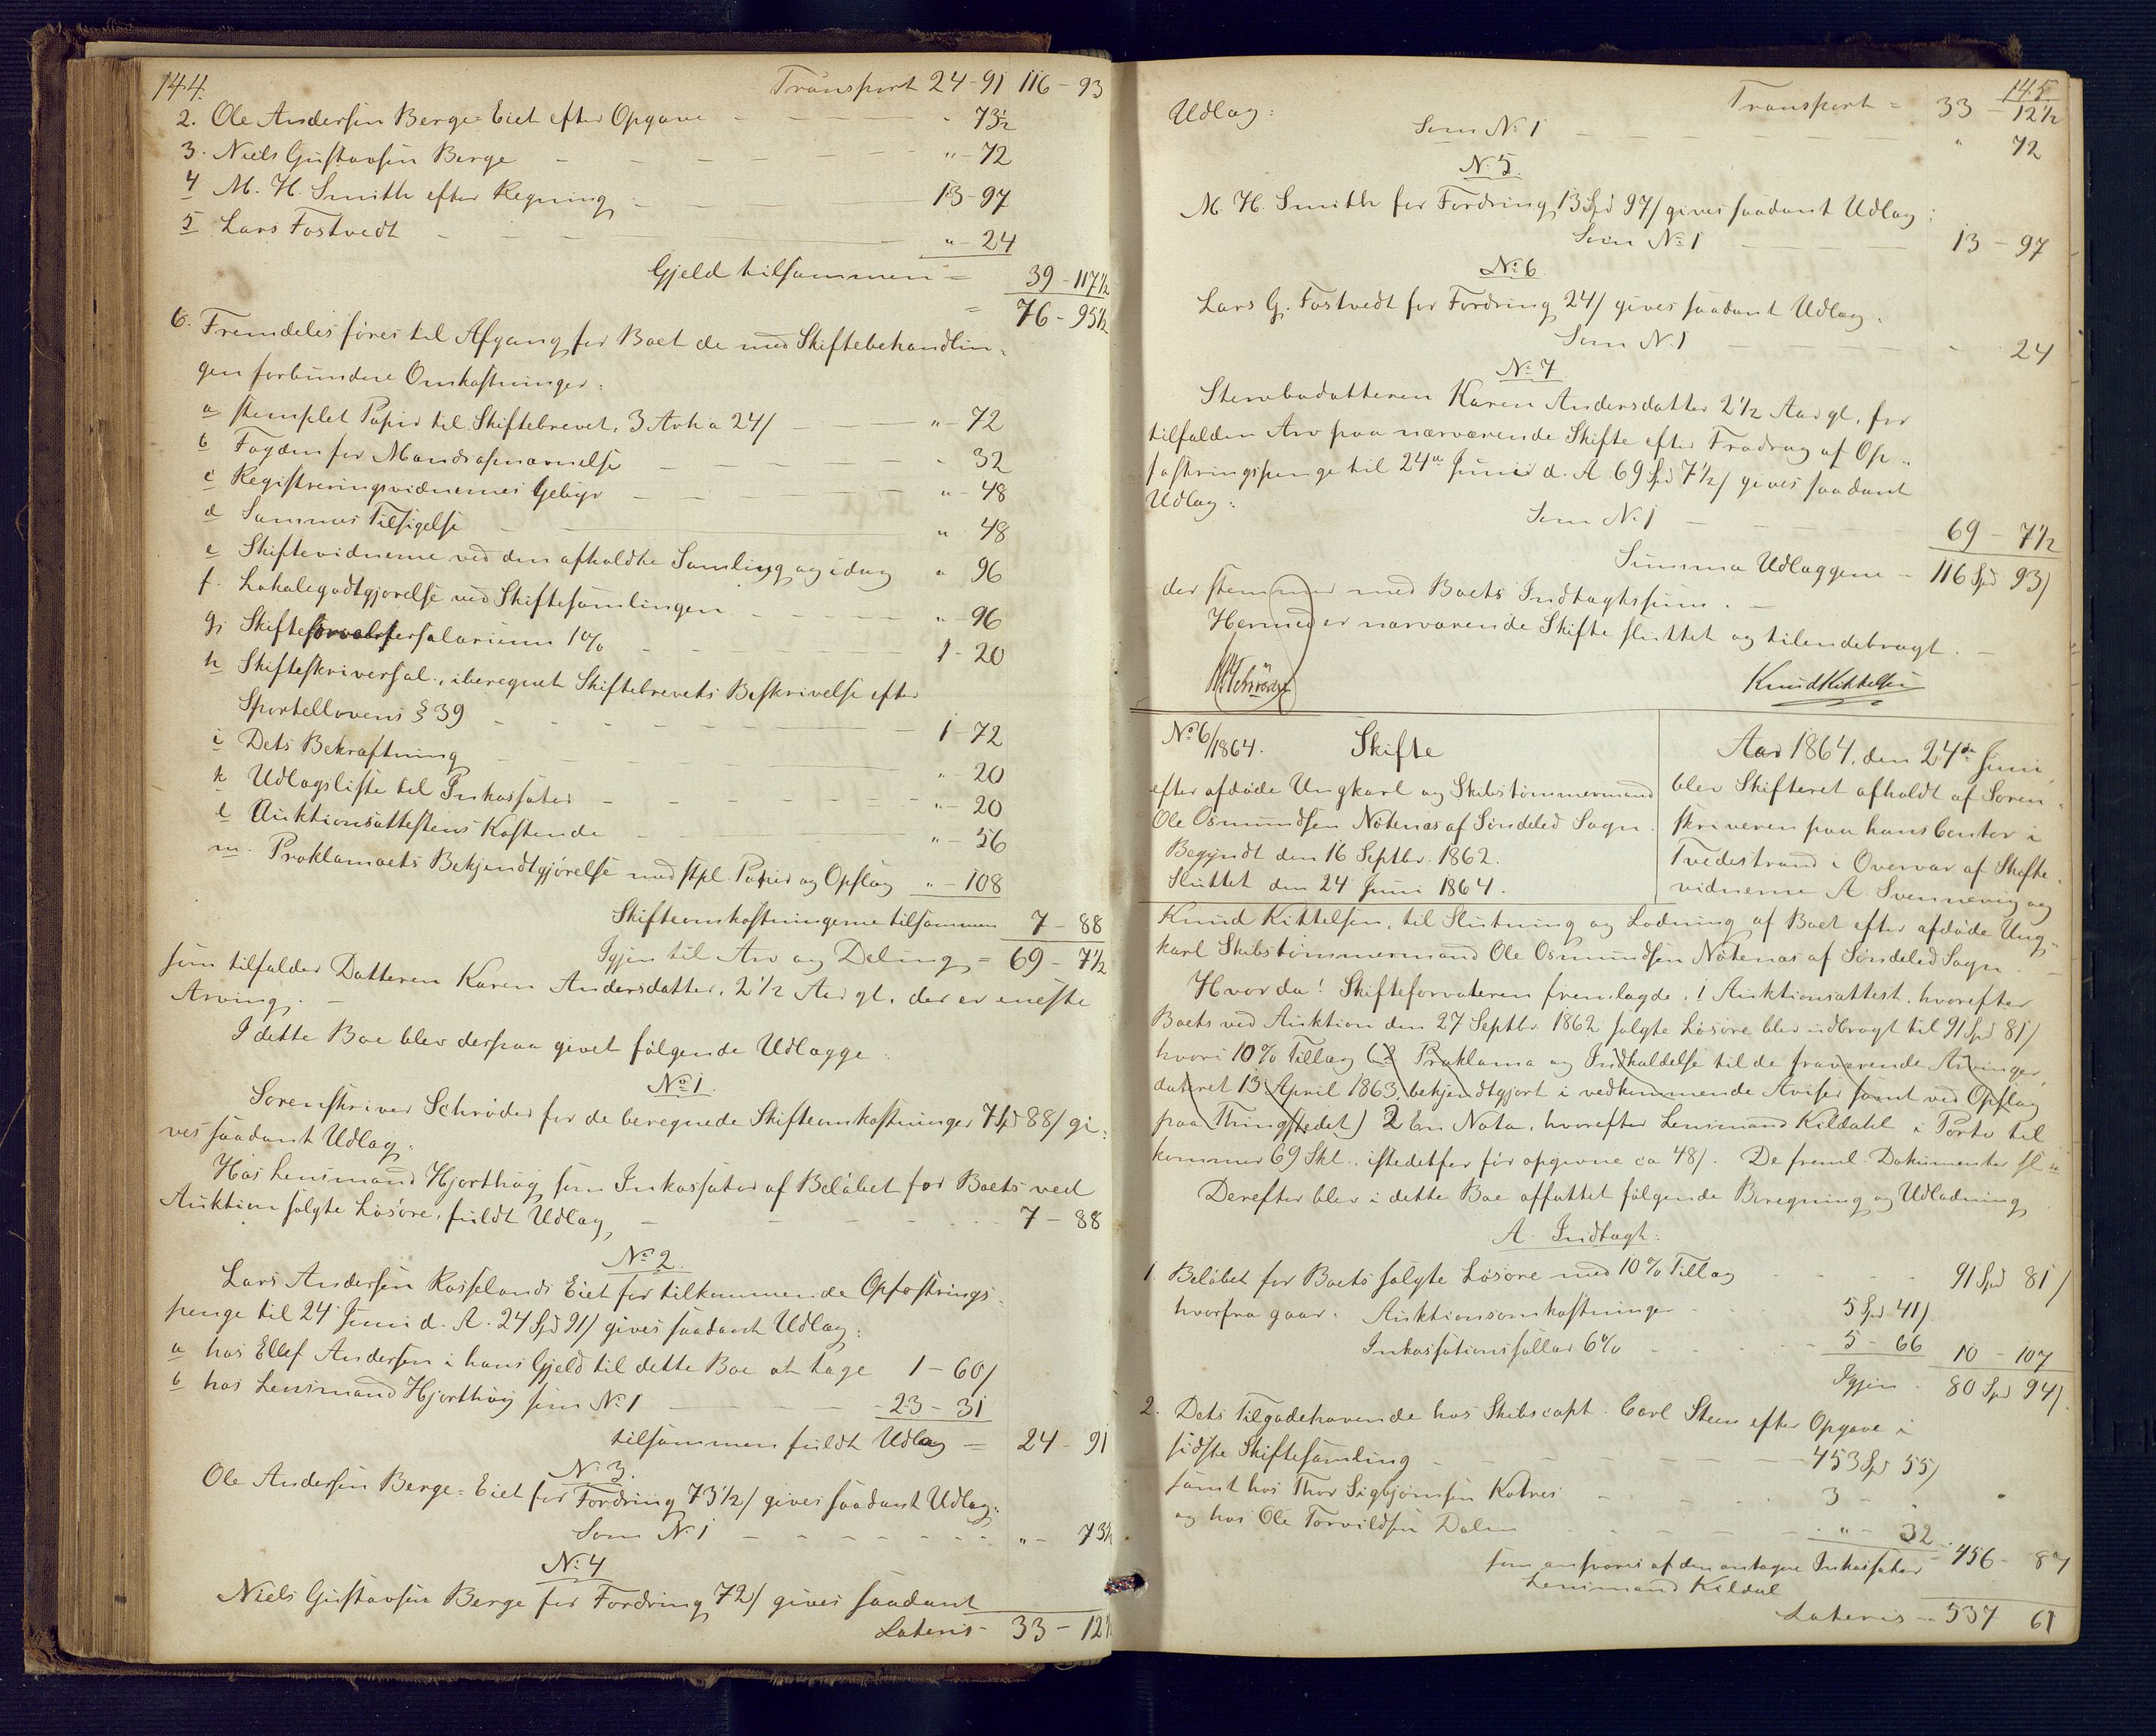 144.
Transport 24-91 116-93
2. Ole Andersen Berge-Eiet efter Opgave - 73½
3. Niels Gustavsen Berge - " - 72
4 M. H. Smith efter Regning - 13-97
5 Lars Fostvedt - " - 24
Gjeld tilsammen = 39-117½
= 76-95½
6. Fremdeles føres til Afgang for Boet de med Skiftebehandlin-
gen forbundne Omkostninger:
a stemplet Papir til Skiftebrevet, 3 Ark a 24/ " - 72
b Fogden for Mandsopnævnelse - 32
c Registreringsvidnernes Gebyr " - 48
d Sammes Tilsigelse " 48
e Skiftevidnerne ved den afholdte Samling og idag " 96
f. Lokalegodtgjørelse ved Skiftesamlingen " - 96
g. Skifteforvaltersalarium 1% 1-20
h Skifteskriversal., iberegnet Skiftebrevets Beskrivelse efter
Sportellovens § 39 1-72
i Dets Bekræftning " - 20
k Udlagsliste til Inkassator " - 20
l Auktionsattestens Kostende " - 56
m. Proklamaets Bekjendtgjørelse med stpl. Papir og Opslag " - 108
Skifteomkostningerne tilsammen 7-88
Igjen til Arv og Deling = 69-7½
som tilfalder Datteren Karen Andersdatter, 2½ Aar gl. der er eneste
Arving.
I dette Boe blev derpaa givet følgende Udlægge:
No 1.
Sorenskriver Schrøder for de beregnede Skifteomkostninger 7 Spd 88/ gi-
ves saadant Udlag:
Hos Lensmand Hjorthøg som Inkassator af Beløbet for Boets ved
Auktion solgte Løsøre, fuldt Udlag 7-88
No 2.
Lars Andersen Rosselands Eiet for tilkommende Opfostrings-
penge til 24 Juni d. A. 24 Spd 91/ gives saadant Udlag:
a hos Ellef Andersen i hans Gjeld til dette Boe at tage 1-60/
b hos Lensmand Hjorthøg som No 1 23-31
tilsammen fuldt Udlag = 24-91
No 3.
Ole Andersen Berge-Eiet for Fordring 73½/ gives saadant Udlag:
Som No 1 " - 73½
No 4
Niels Gustavsen Berge for Fordring 72/ gives saadant
Lateris - 33-12½
145
Transport = 33-12½
Udlag:
Som No 1 " 72
No 5.
M. H. Smith for Fordring 13 Spd 97/ gives saadant Udlag:
Som No 1 13-97
No 6
Lars G. Fostvedt for Fordring 24/ gives saadant Udlag.
Som No 1 24
No 7
Stervbodatteren Karen Andersdatter 2½ Aar gl. for
tilfalden Arv paa nærværende Skifte efter Fradrag af Op-
fostringspenge til 24de Juni d. A. 69 Spd 7½/ gives saadant
Udlag:
Som No 1 69-7½
Summa Udlæggene = 116 Spd 93/
der stemmer med Boets Indtægtssum.
Hermed er nærværende Skifte sluttet og tilendebragt.
Schrøder
Knud Kittelsen
No 6/1864. Skifte
efter afdøde Ungkarl og Skibstømmermand
Ole Osmundsen Nøtenæs af Søndeled Sogn.
Begyndt den 16 Septbr. 1862.
Sluttet den 24 Juni 1864.
Aar 1864, den 24de Juni
blev Skifteret afholdt af Soren-
skriveren paa hans Contor i
Tvedestrand i Overvær af Skifte-
vidnerne A. Svennevig og
Knud Kittelsen, til Slutning og Lodning af Boet efter afdøde Ung-
karl Skibstømmermand Ole Osmundsen Nøtenæs af Søndeled Sogn.
Hvor da! Skifteforvalteren fremlagde: 1 Auktionsattest, hvorefter
Boets ved Auktion den 27 Septbr. 1862 solgte Løsøre blev udbragt til 91 Spd 81/
hvori 10% Tillæg (2 Proklama og Indkaldelse til de fraværende Arvinger,
dateret 13 April 1863, bekjendtgjort i vedkommende Aviser samt ved Opslag
paa Thingstedet) 2 En Nota, hvorefter Lensmand Kildahl i Porto til
kommer 69 Skl., istedetfor før opgivne ca 48/. De freml. Dokumenter fl.
Derefter blev i dette Boe affattet følgende Beregning og Udlodning
A. Indtægt:
1. Beløbet for Boets solgte Løsøre med 10% Tillæg 91 Spd 81/
hvorfra gaar: Auktionsomkostninger 5 Spd 41/
Inkassationssallær 6% 5-66 10-107
Igjen 80 Spd 94/
2. Dets Tilgodehavende hos Skibscapt. Carl Steen efter Opgave i
sidste Skiftesamling 453 Spd 55/
samt hos Thor Sigbjørnsen Kotnes 3 - "
og hos Ole Torvildsen Dalen " - 32
som ansvares af den antagne Inkassator 456-87
Lensmand Kildal
Lateris = 537 61